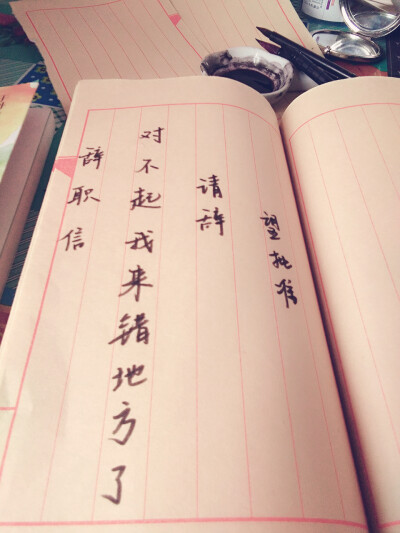 辞职信
对不起我来错地方了
请辞
望批准